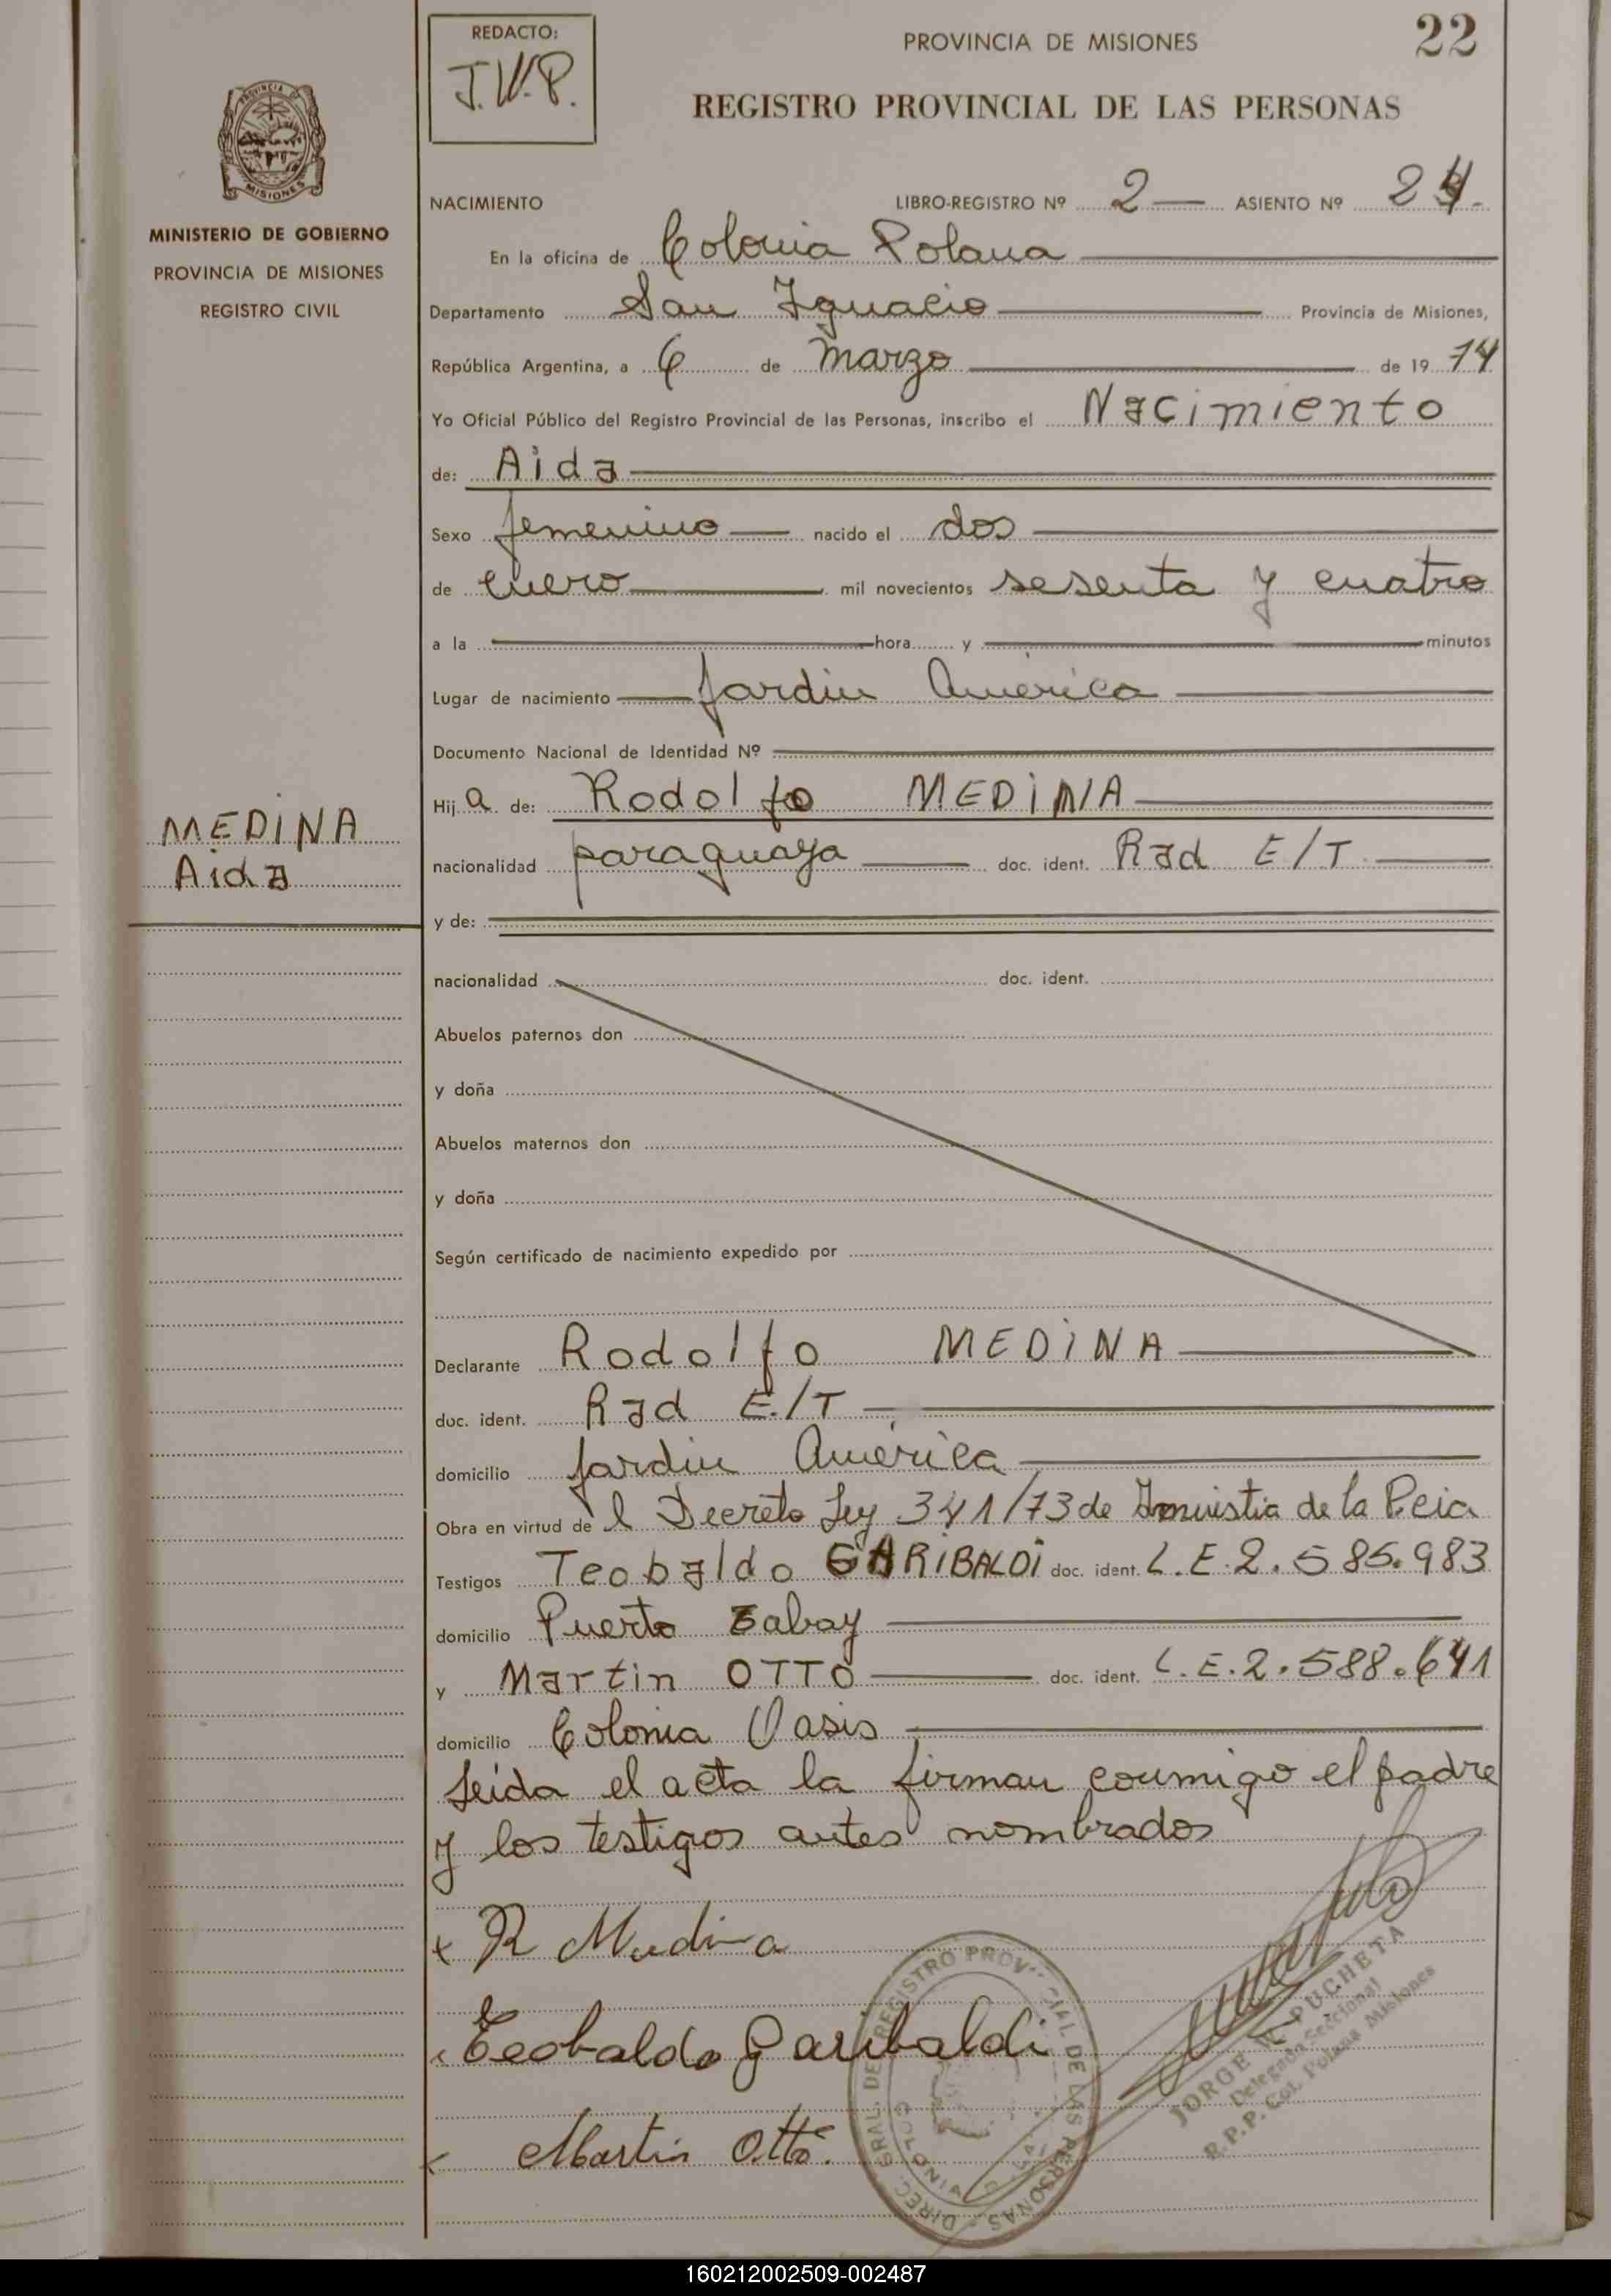 22
REDACTO:
J.W.P.
PROVINCIA DE MISIONES
REGISTRO PROVINCIAL DE LAS PERSONAS
PROVINCIA DE
MISIONES
MINISTERIO DE GOBIERNO
PROVINCIA DE MISIONES
REGISTRO CIVIL
NACIMIENTO LIBRO-REGISTRO Nº 2 ASIENTO Nº 24.
En la oficina de Colonia Polana
Departamento San Ignacio Provincia de Misiones,
República Argentina, a 6 de marzo de 19 74
Yo Oficial Público del Registro Provincial de las Personas, inscribo el Nacimiento
de: Aida
Sexo femenino nacido el dos
de enero mil novecientos sesenta y cuatro
a la hora y minutos
Lugar de nacimiento Jardin América
Documento Nacional de Identidad Nº
Hij a de: Rodolfo MEDINA
MEDINA
Aida
nacionalidad paraguaya doc. ident. Rad E/T
y de:
nacionalidad doc. ident.
Abuelos paternos don
y doña
Abuelos maternos don
y doña
Según certificado de nacimiento expedido por
Declarante Rodolfo MEDINA
doc. ident. Rad E./T
domicilio Jardin América
Obra en virtud de l Decreto Ley 341/73 de Amnistia de la Pcia
Testigos Teobaldo GARIBALDI doc. ident. L.E.2.585.983
domicilio Puerto Tabay
y Martin OTTO doc. ident. L.E.2.588.641
domicilio Colonia Oasis
Leida el acta la firman conmigo el padre
y los testigos antes nombrados
x R Medina
Teobaldo Garibaldi
Martin Otto.
DIREC. GRAL. DEL REGISTRO PROVINCIAL DE LAS PERSONAS
JORGE W. PUCHETA
Delegado Seccional
R.P.P. Col. Polana Misiones
160212002509-002487